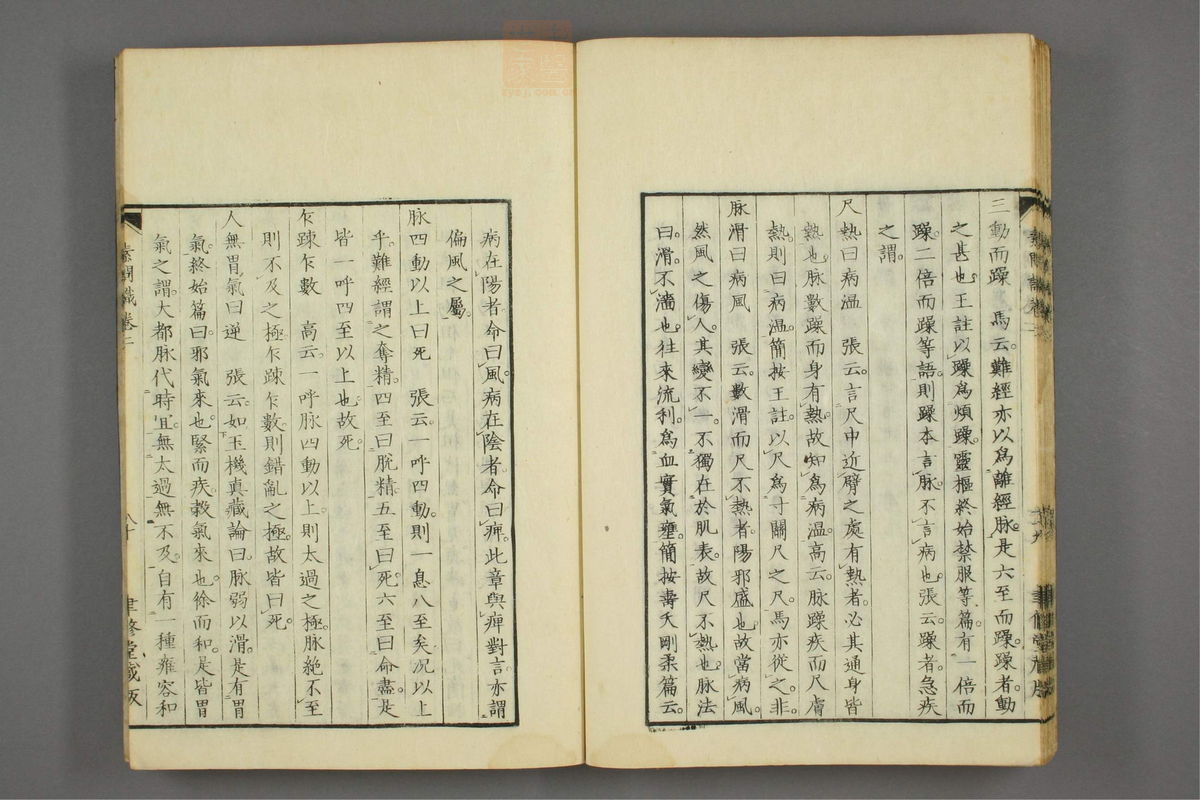 三動而躁　馬云。難經亦以爲離經脉。是六至而躁。躁者。動
之甚也。王註以躁爲煩躁。靈樞終始禁服等篇。有一倍而
躁。二倍而躁等語。則躁本言脉。不言病也。張云。躁者。急疾
之謂。
尺熱曰病温　張云。言尺中近臂之處有熱者。必其通身皆
熱也。脉數躁而身有熱。故知爲病温。高云。脉躁疾而尺膚
熱。則曰病温。簡按王註。以尺爲寸關尺之尺。馬亦從之。非。
脉滑曰病風　張云。數滑而尺不熱者。陽邪盛也。故當病風。
然風之傷人。其變不一。不獨在於肌表。故尺不熱也。脉法
曰。滑。不濇也。往來流利。爲血實氣壅。簡按壽夭剛柔篇云。
病在陽者。命曰風。病在陰者。命曰痺。此章與痺對言。亦謂
偏風之屬。
脉四動以上曰死　張云。一呼四動。則一息八至矣。况以上
乎。難經謂之奪精。四至曰脱精。五至曰死。六至曰命盡。是
皆一呼四至以上也。故死。
乍踈乍數　高云。一呼脉四動以上。則太過之極。脉絶不至
則不及之極。乍踈乍數。則錯亂之極。故皆曰死。
人無胃氣曰逆　張云。如玉機真藏論曰。脉弱以滑。是有胃
氣。終始篇曰。邪氣來也。緊而疾。穀氣來也。徐而和。是皆胃
氣之謂。大都脉代時宜。無太過無不及。自有一種雍容和
素問識卷二
八十
聿修堂藏版